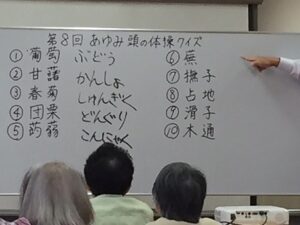 第8回 あゆみ 頭の体操クイズ
① 葡萄 ぶどう
② 甘藷 かんしょ
③ 春菊 しゅんぎく
④ 団栗 どんぐり
⑤ 蒟蒻 こんにゃく
⑥ 蕪
⑦ 撫子
⑧ 占地
⑨ 滑子
⑩ 木通